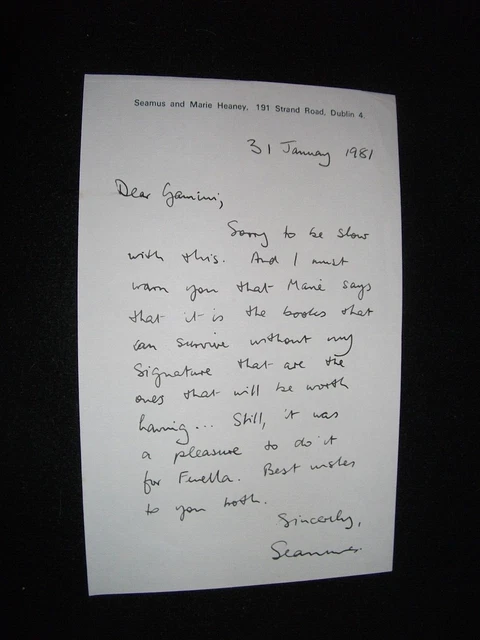 Seamus and Marie Heaney, 191 Strand Road, Dublin 4.
31 January 1981
Dear Gamini,
Sorry to be slow
with this. And I must
warn you that Marie says
that it is the books that
can survive without my
signature that are the
ones that will be worth
having... Still, it was
a pleasure to do it
for Finella. Best wishes
to you both.
Sincerely,
Seamus.